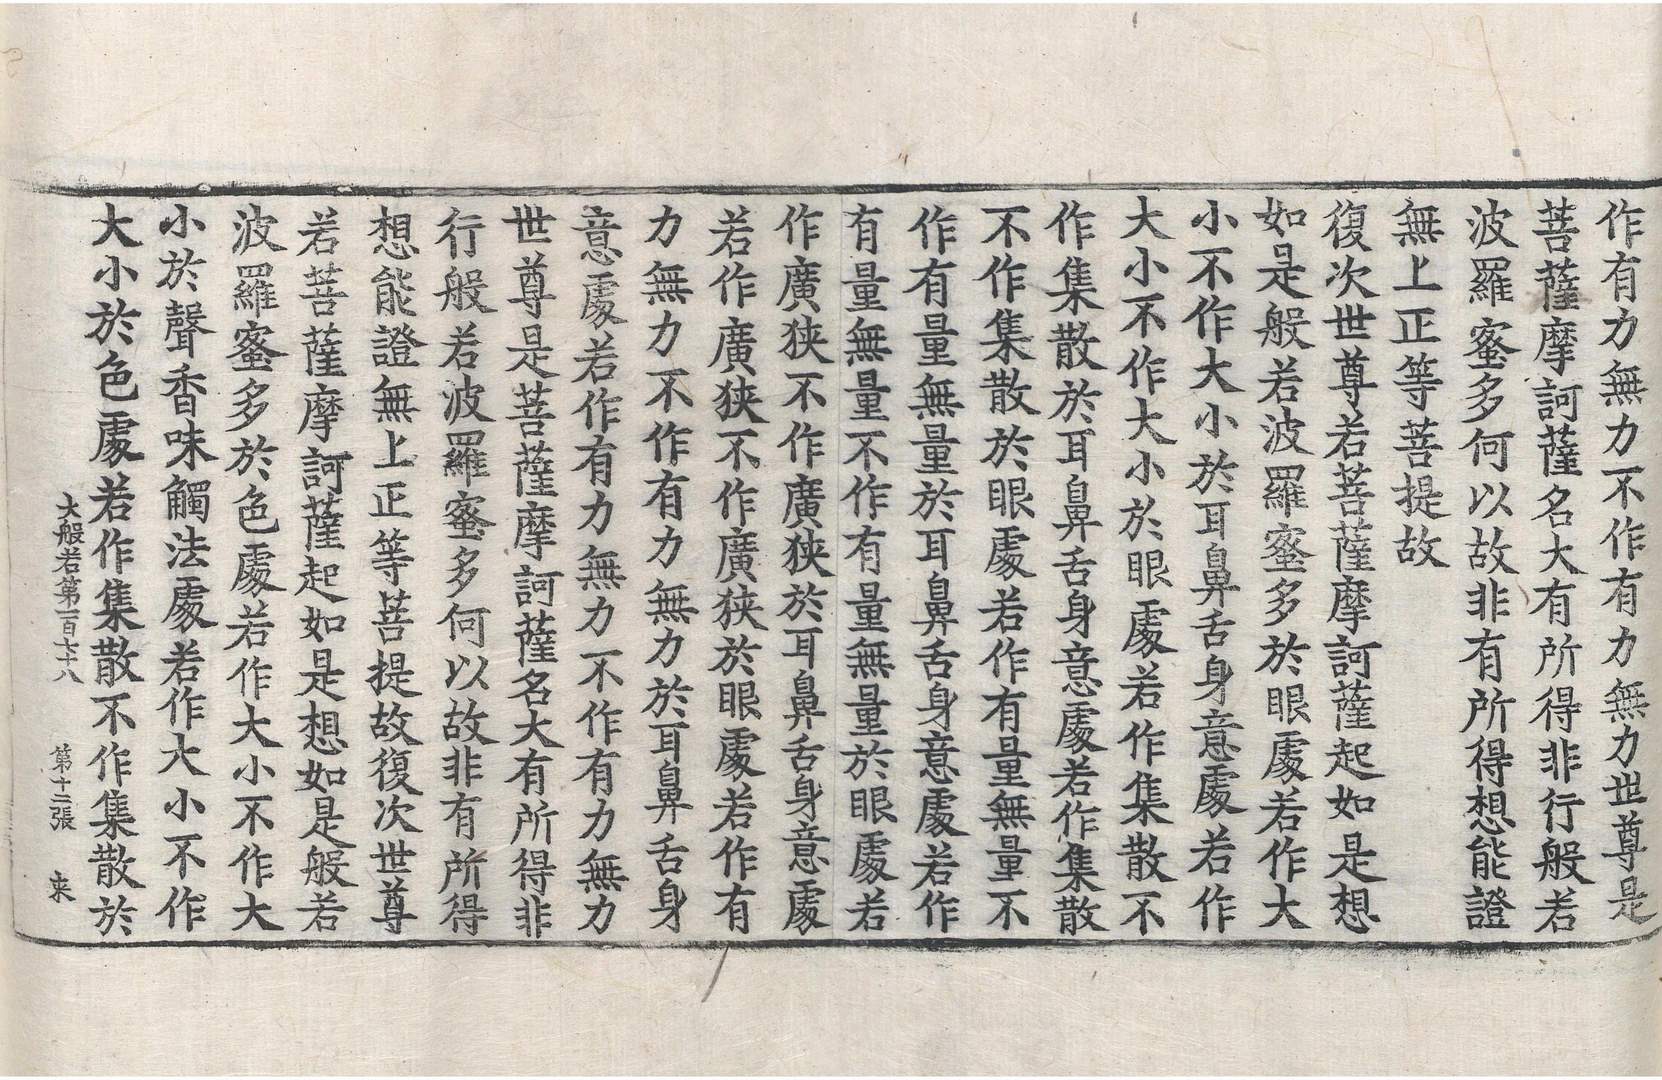 作有力無力不作有力無力世尊是
菩薩摩訶薩名大有所得非行般若
波羅蜜多何以故非有所得想能證
無上正等菩提故
復次世尊若菩薩摩訶薩起如是想
如是般若波羅蜜多於眼處若作大
小不作大小於耳鼻舌身意處若作
大小不作大小於眼處若作集散不
作集散於耳鼻舌身意處若作集散
不作集散於眼處若作有量無量不
作有量無量於耳鼻舌身意處若作
有量無量不作有量無量於眼處若
作廣狭不作廣狭於耳鼻舌身意處
若作廣狭不作廣狭於眼處若作有
力無力不作有力無力於耳鼻舌身
意處若作有力無力不作有力無力
世尊是菩薩摩訶薩名大有所得非
行般若波羅蜜多何以故非有所得
想能證無上正等菩提故復次世尊
若菩薩摩訶薩起如是想如是般若
波羅蜜多於色處若作大小不作大
小於聲香味觸法處若作大小不作
大小於色處若作集散不作集散於
大般若第一百七十八 第十二張 来